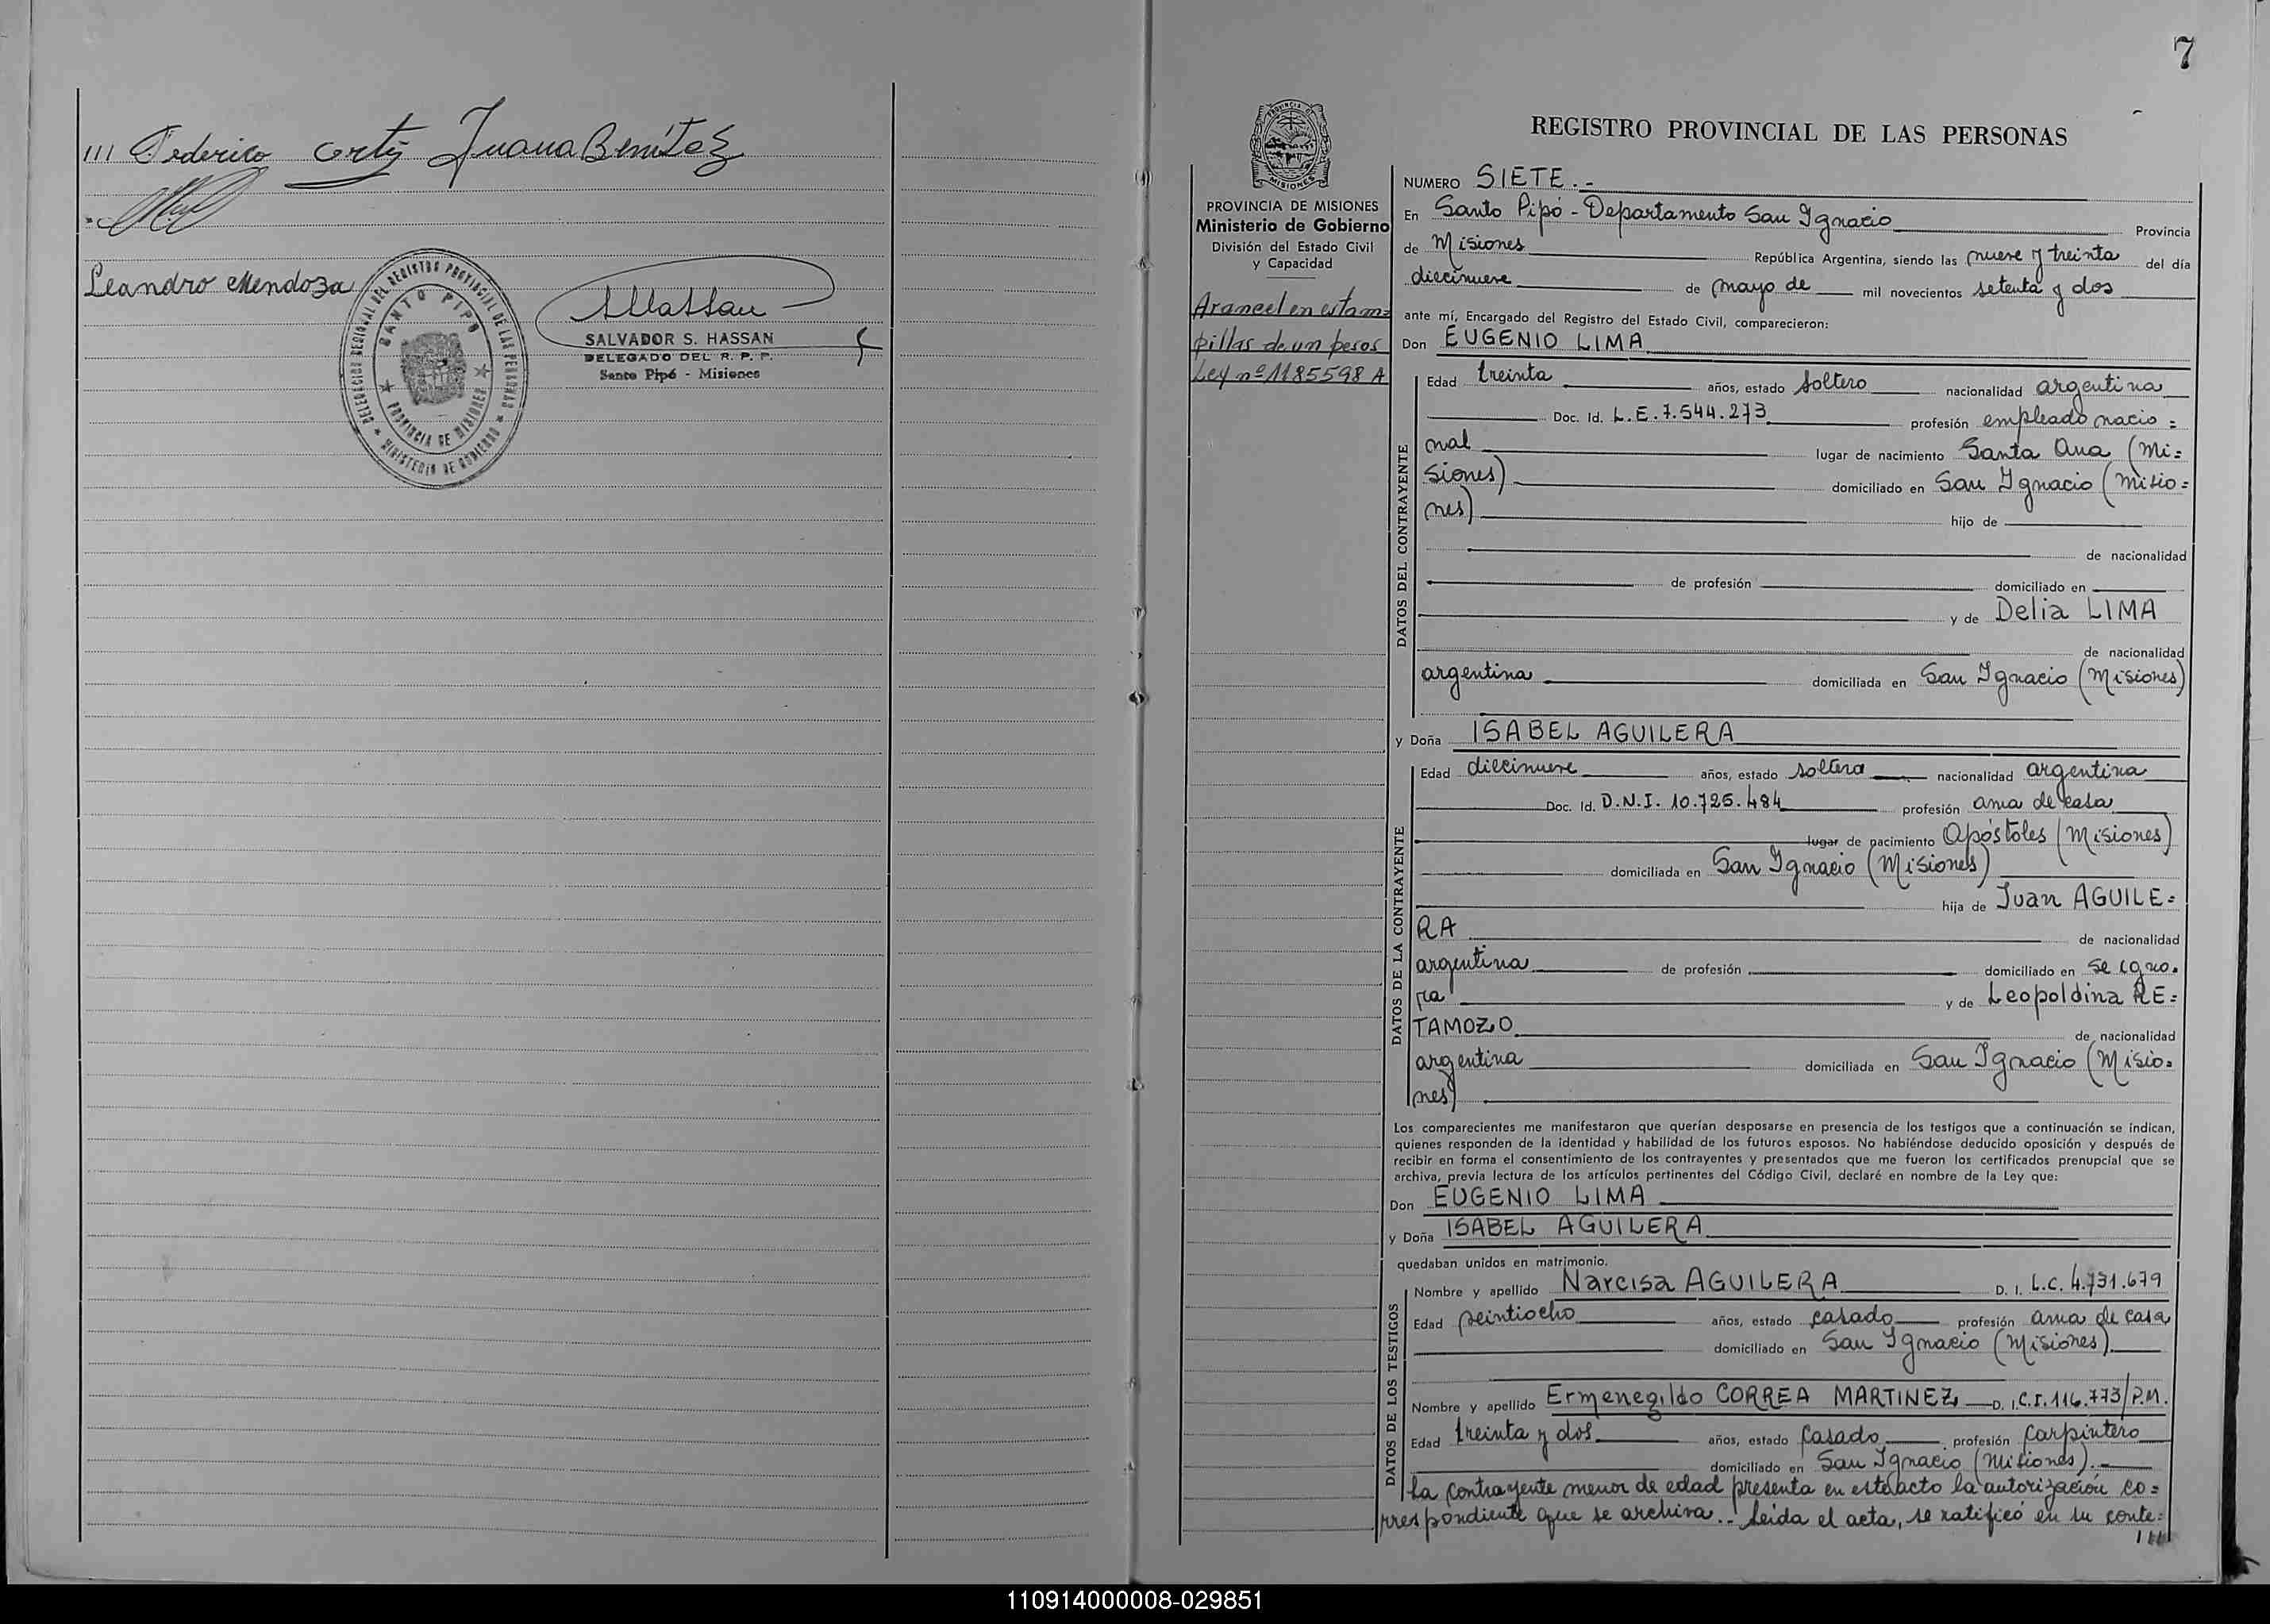 /// Federico Cortés Juana Benítez
Leandro Mendoza
DELEGACION REGIONAL DEL REGISTRO PROVINCIAL DE LAS PERSONAS
SANTO PIPO
PROVINCIA DE MISIONES
MINISTERIO DE GOBIERNO
SALVADOR S. HASSAN
DELEGADO DEL R. P. P.
Santo Pipó - Misiones
7
PROVINCIA DE
MISIONES
PROVINCIA DE MISIONES
Ministerio de Gobierno
División del Estado Civil
y Capacidad
Arancel en estam=
pillas de un pesos
Ley nº 1185598 A
REGISTRO PROVINCIAL DE LAS PERSONAS
NUMERO SIETE.-
En Santo Pipó - Departamento San Ignacio Provincia
de Misiones República Argentina, siendo las nueve y treinta del día
diecinueve de mayo de mil novecientos setenta y dos
ante mí, Encargado del Registro del Estado Civil, comparecieron:
Don EUGENIO LIMA
DATOS DEL CONTRAYENTE
Edad treinta años, estado soltero nacionalidad argentina
Doc. Id. L.E. 7.544.273 profesión empleado nacio=
nal lugar de nacimiento Santa Ana (Mi=
siones) domiciliado en San Ignacio (Misio=
nes) hijo de
de nacionalidad
de profesión domiciliado en
y de Delia LIMA
de nacionalidad
argentina domiciliada en San Ignacio (Misiones)
y Doña ISABEL AGUILERA
DATOS DE LA CONTRAYENTE
Edad diecinueve años, estado soltera nacionalidad argentina
Doc. Id. D.N.I. 10.725.484 profesión ama de casa
lugar de nacimiento Apóstoles (Misiones)
domiciliada en San Ignacio (Misiones)
hija de Juan AGUILE=
RA de nacionalidad
argentina de profesión domiciliado en se igno.
ra y de Leopoldina RE=
TAMOZO de nacionalidad
argentina domiciliada en San Ignacio (Misio=
nes)
Los comparecientes me manifestaron que querían desposarse en presencia de los testigos que a continuación se indican,
quienes responden de la identidad y habilidad de los futuros esposos. No habiéndose deducido oposición y después de
recibir en forma el consentimiento de los contrayentes y presentados que me fueron los certificados prenupcial que se
archiva, previa lectura de los artículos pertinentes del Código Civil, declaré en nombre de la Ley que:
Don EUGENIO LIMA
y Doña ISABEL AGUILERA
quedaban unidos en matrimonio.
DATOS DE LOS TESTIGOS
Nombre y apellido Narcisa AGUILERA D. I. L.C. 4.731.679
Edad veintiocho años, estado casado profesión ama de casa
domiciliado en San Ignacio (Misiones)
Nombre y apellido Ermenegildo CORREA MARTINEZ D. I. C.I. 116.773/P.M.
Edad treinta y dos años, estado casado profesión carpintero
domiciliado en San Ignacio (Misiones).-
La contrayente menor de edad presenta en este acto la autorización co=
rrespondiente que se archiva.- Leída el acta, se ratificó en su conte=
///
110914000008-029851